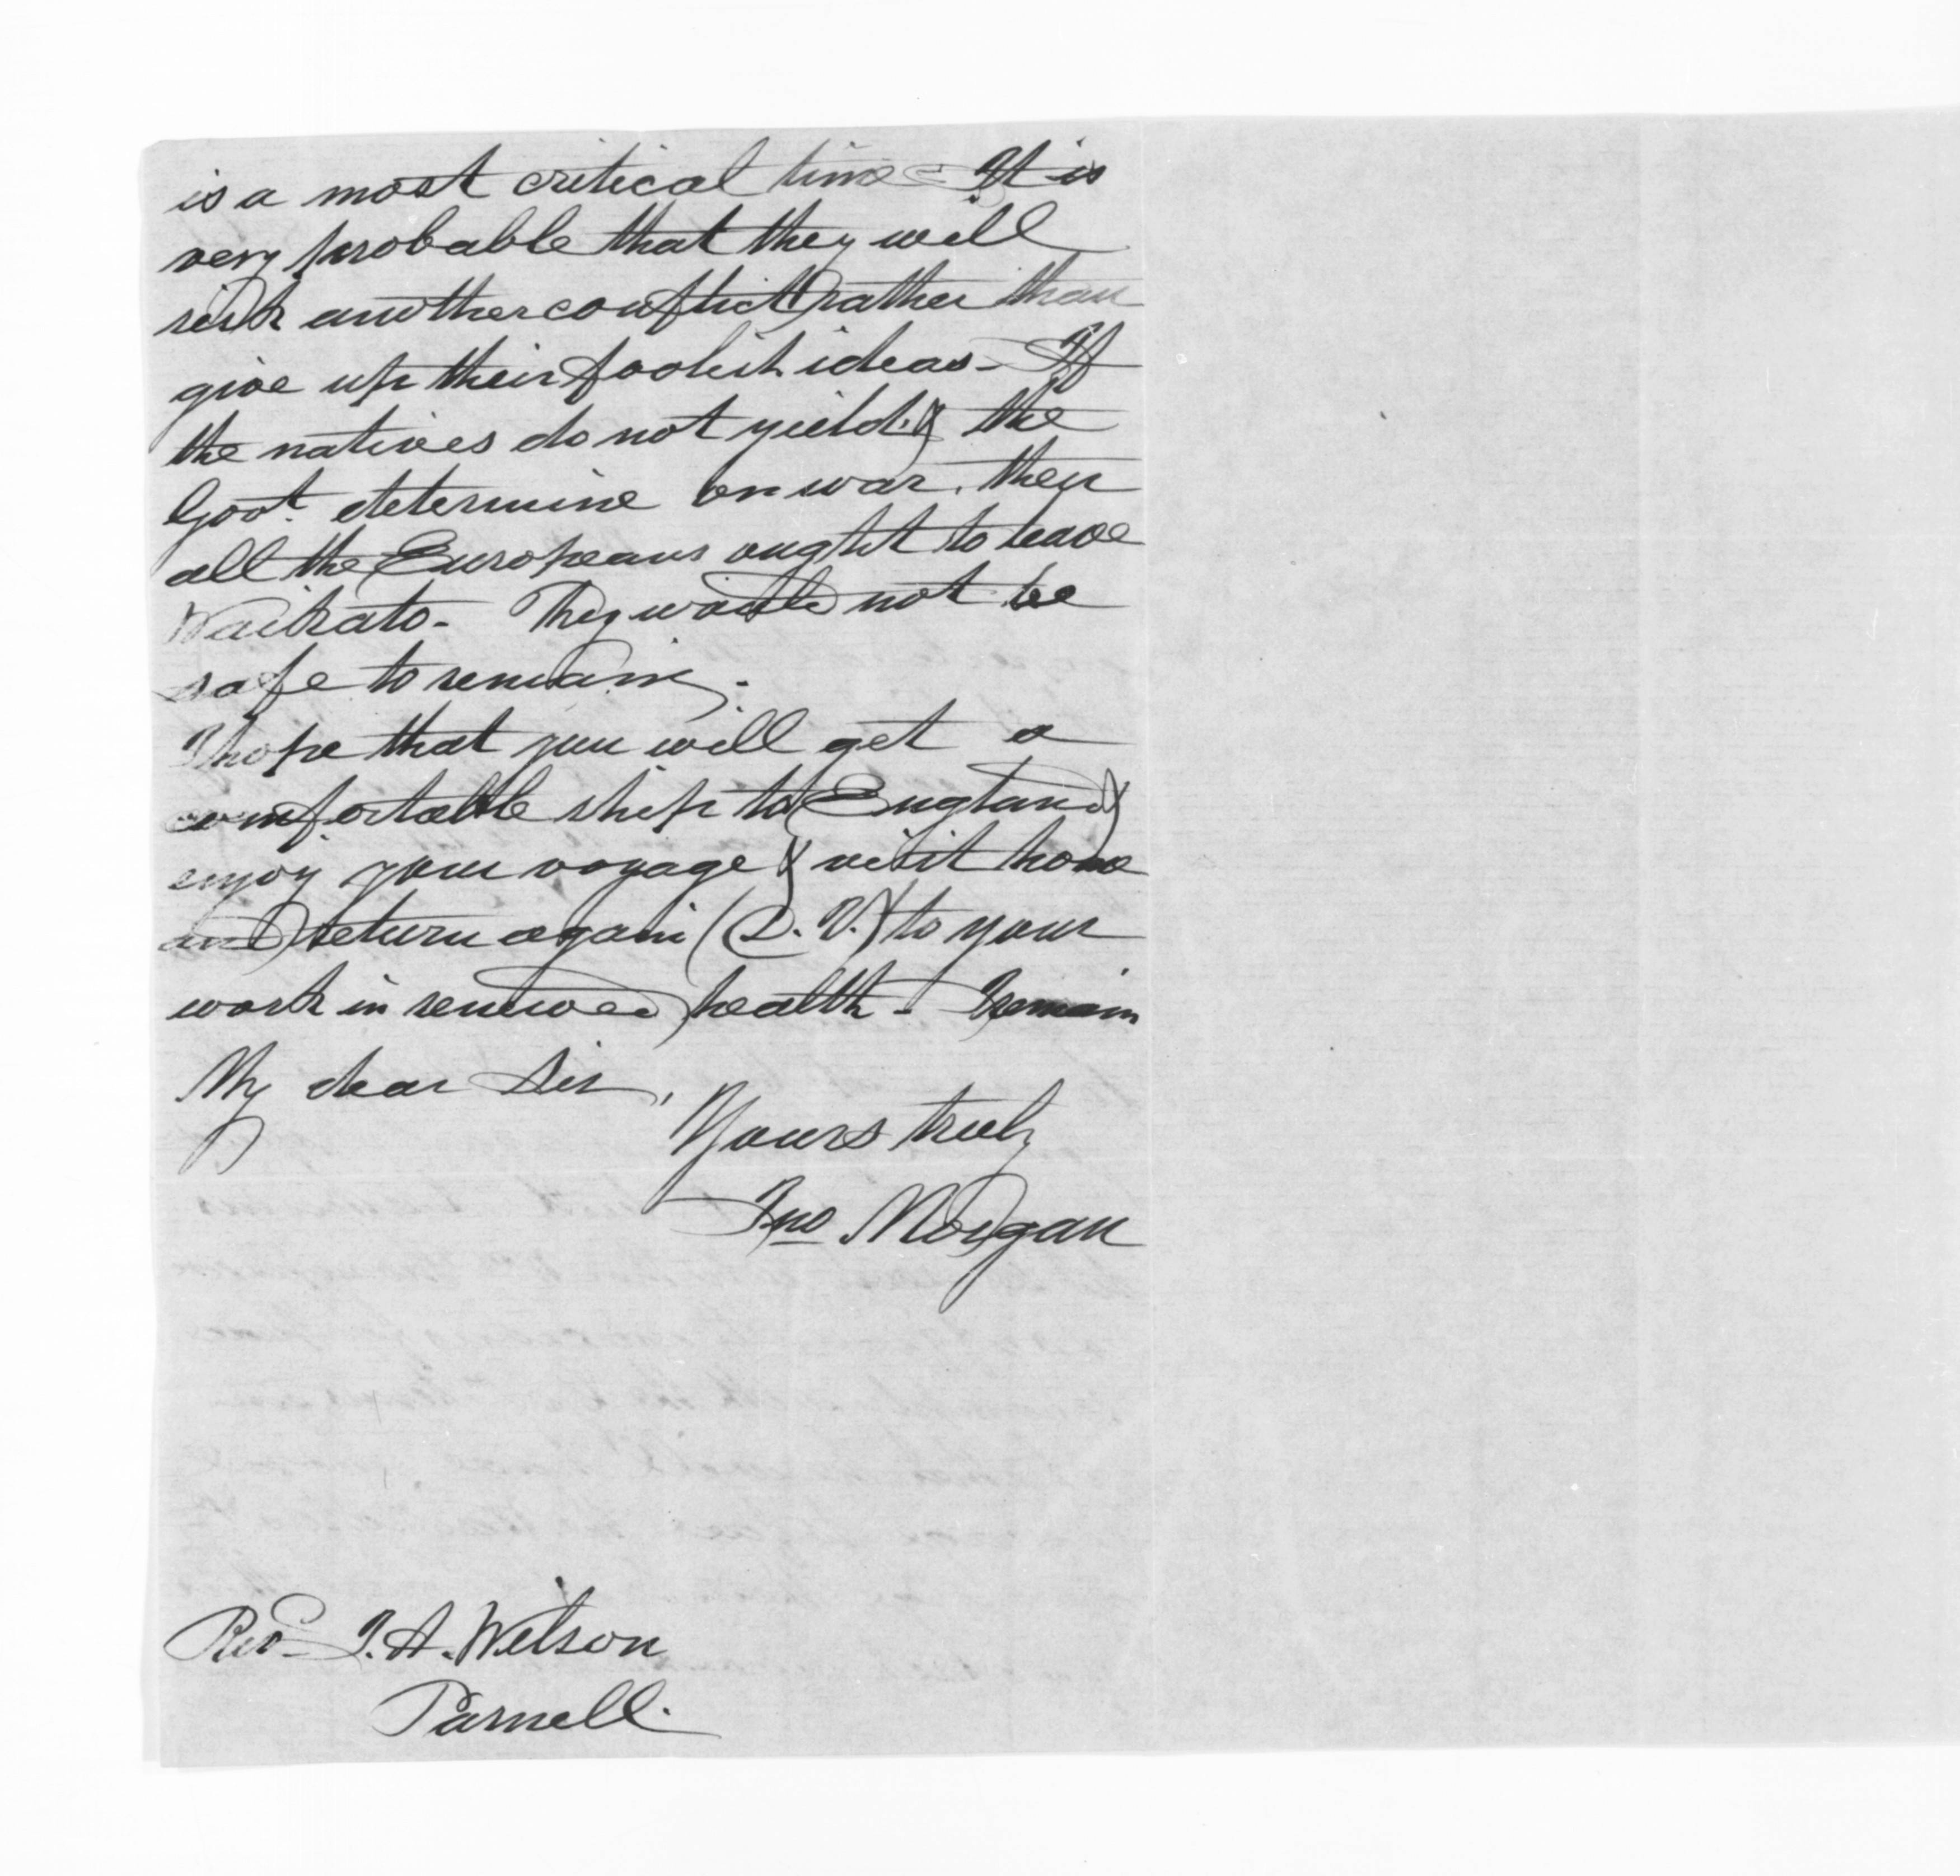 is a most critical time - It is
very probable that they will
risk another conflict rather than
give up their foolish ideas - If
the natives do not yield & the
Govt. determine on war, then
all the Europeans ought to leave
Waikato - They would not be
safe to remain.
I hope that you will get a
comfortable ship to England &
enjoy your voyage & visit home
and return again (D. V.) to your
work in renewed health - I remain
My dear Sir,
Yours truly
Jno Morgan
Rev. J. A. Wilson
Parnell.